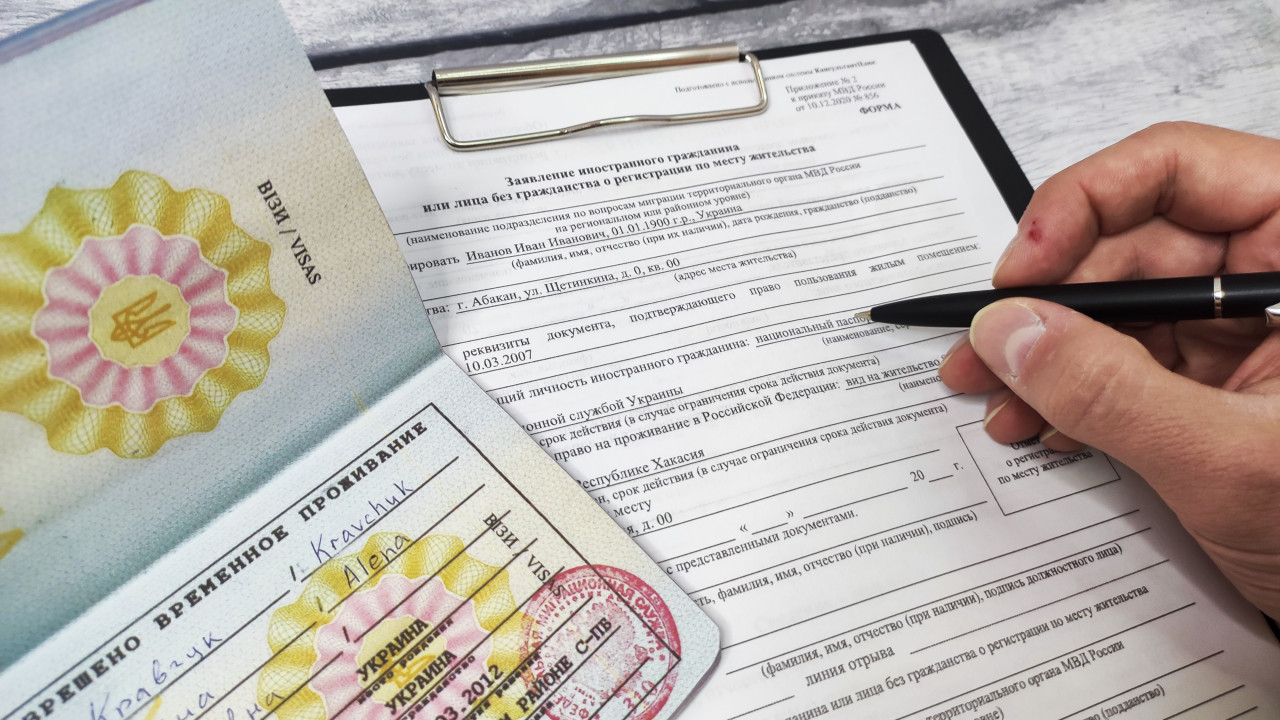 ВІЗИ / VISAS
ЗРЕШЕНО ВРЕМЕННОЕ ПРОЖИВАНИЕ
Кравчук / Kravchuk
/ Alena
/
ВІЗИ / VISAS
УКРАИНА
УКРАИНА
03.2012
РАЙОНЕ С-ПБ
МИГРАЦИОННАЯ СЛУЖБА
Подготовлено с использованием системы КонсультантПлюс
Приложение № 2
к приказу МВД России
от 10.12.2020 № 856
ФОРМА
Заявление иностранного гражданина
или лица без гражданства о регистрации по месту жительства
(наименование подразделения по вопросам миграции территориального органа МВД России
на региональном или районном уровне)
ировать Иванов Иван Иванович, 01.01.1900 г.р., Украина
(фамилия, имя, отчество (при их наличии), дата рождения, гражданство (подданство)
тва: г. Абакан, ул. Щетинкина, д. 0, кв. 00
(адрес места жительства)
реквизиты документа, подтверждающего право пользования жилым помещением:
10.03.2007
щий личность иностранного гражданина: национальный паспо
(наименование, се
онной службой Украины
срок действия (в случае ограничения срока действия документа)
право на проживание в Российской Федерации: вид на жительство
(наимено
еспублике Хакасия
ан, срок действия (в случае ограничения срока действия документа)
месту
я, д. 00
« » 20 г.
с представленными документами.
ть, фамилия, имя, отчество (при наличии), подпись)
Отмет
о регистра
по месту жительства
(фамилия, имя, отчество (при наличии), подпись должностного лица)
линия отрыва
данина или лица без гражданства о регистрации по месту жительства
территориального органа МВД России
вне)
ичии), дата рождения, гражданство (подданство)